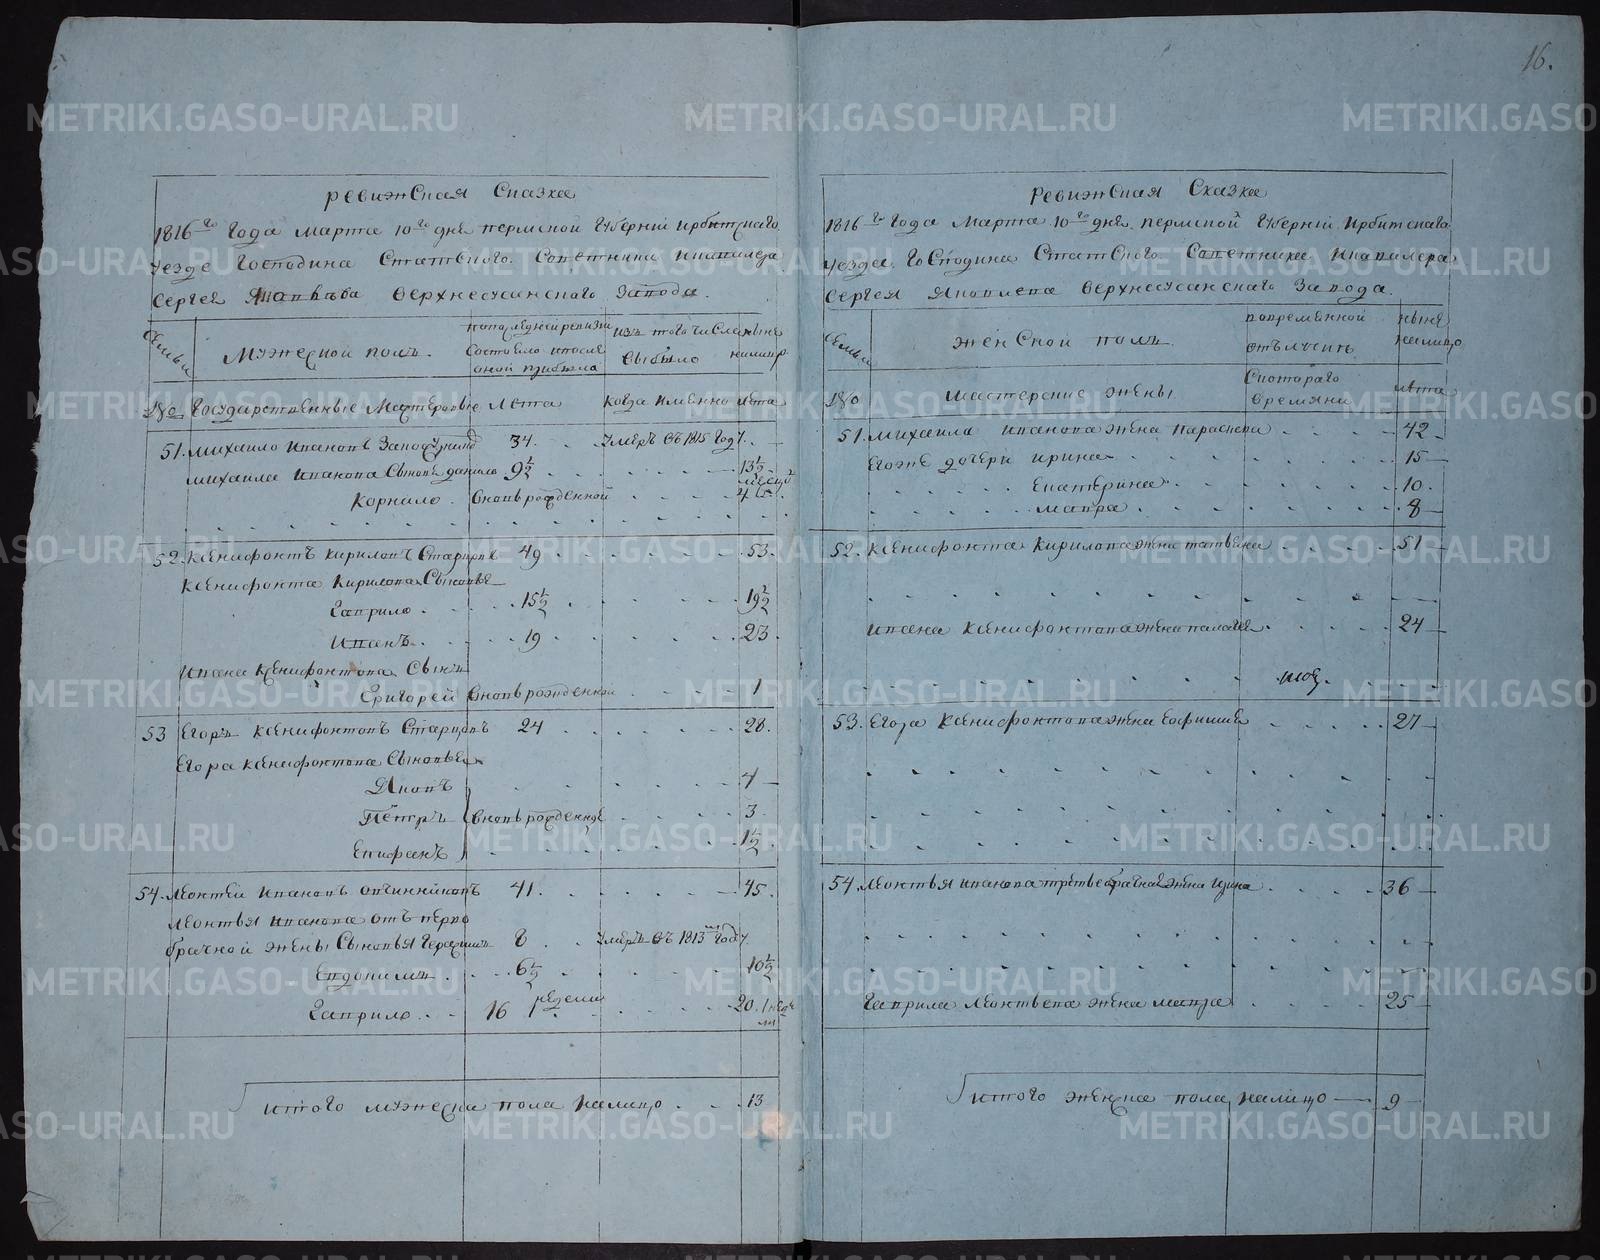 16.
Ревижская Сказка
1816го Года Марта 10го дня пермской Губернии Ирбитскаго
уезда Господина Статскаго Советника и кавалера
Сергея Яковлева Верхнесусанскаго завода.
Семьи
Мужеской полъ.
по последней ревизии
состояло и после
оной прибыло
изъ того числа
выбыло
ныне
налицо
No Государственные Мастеровые
Лета
когда имянно
Лета
51. Михайло Ивановъ 34. Умеръ въ 1815 Году.
Михаила Иванова Сыновья данило 9½ 13½
Корнило вновь рожденной 4 месяца
52. Ксенифонтъ Кириловъ Старцовъ 49 53.
Ксенифонта Кирилова Сыновья
Гаврило 15½ 19½
Иванъ 19 23
Ивана Ксенифонтова Сынъ
Григорей вновь рожденной 1
53 Егоръ Ксенифонтовъ Старцовъ 24 28.
Егора Ксенифонтова Сыновья
Яковъ 4
Петръ вновь рожденные 3
Епифанъ 1½
54. Леонтей Ивановъ Овчинниковъ 41. 45.
Леонтья Иванова отъ перво
брачной жены Сыновья Герасимъ 8 Умеръ въ 1813 Году.
Евдокимъ 6½ 10½
Гаврило 16 1 недели 20. 1 недели
Итого мужеска пола налицо 13
Ревижская Сказка
1816го Года Марта 10го дня пермской Губернии Ирбитскаго
уезда Господина Статскаго Советника и кавалера
Сергея Яковлева Верхнесусанскаго завода.
Семьи
Женской полъ.
во временной
отълучки
ныне
налицо
No
Мастерские жены
Скотораго
времяни
лета
51. Михаила Иванова жена Параскева 42
Егоже дочери Ирина 15
Екатерина 10.
Мавра 8
52. Ксенифонта Кирилова жена татьяна 51
Ивана Ксенифонтова жена палагея 24
53. Егора Ксенифонтова жена Еофимия 27
54. Леонтья Иванова третьебрачная жена Ирина 36
Гаврила Леонтьева жена мавра 25
Итого женска пола налицо 9
METRIKI.GASO-URAL.RU